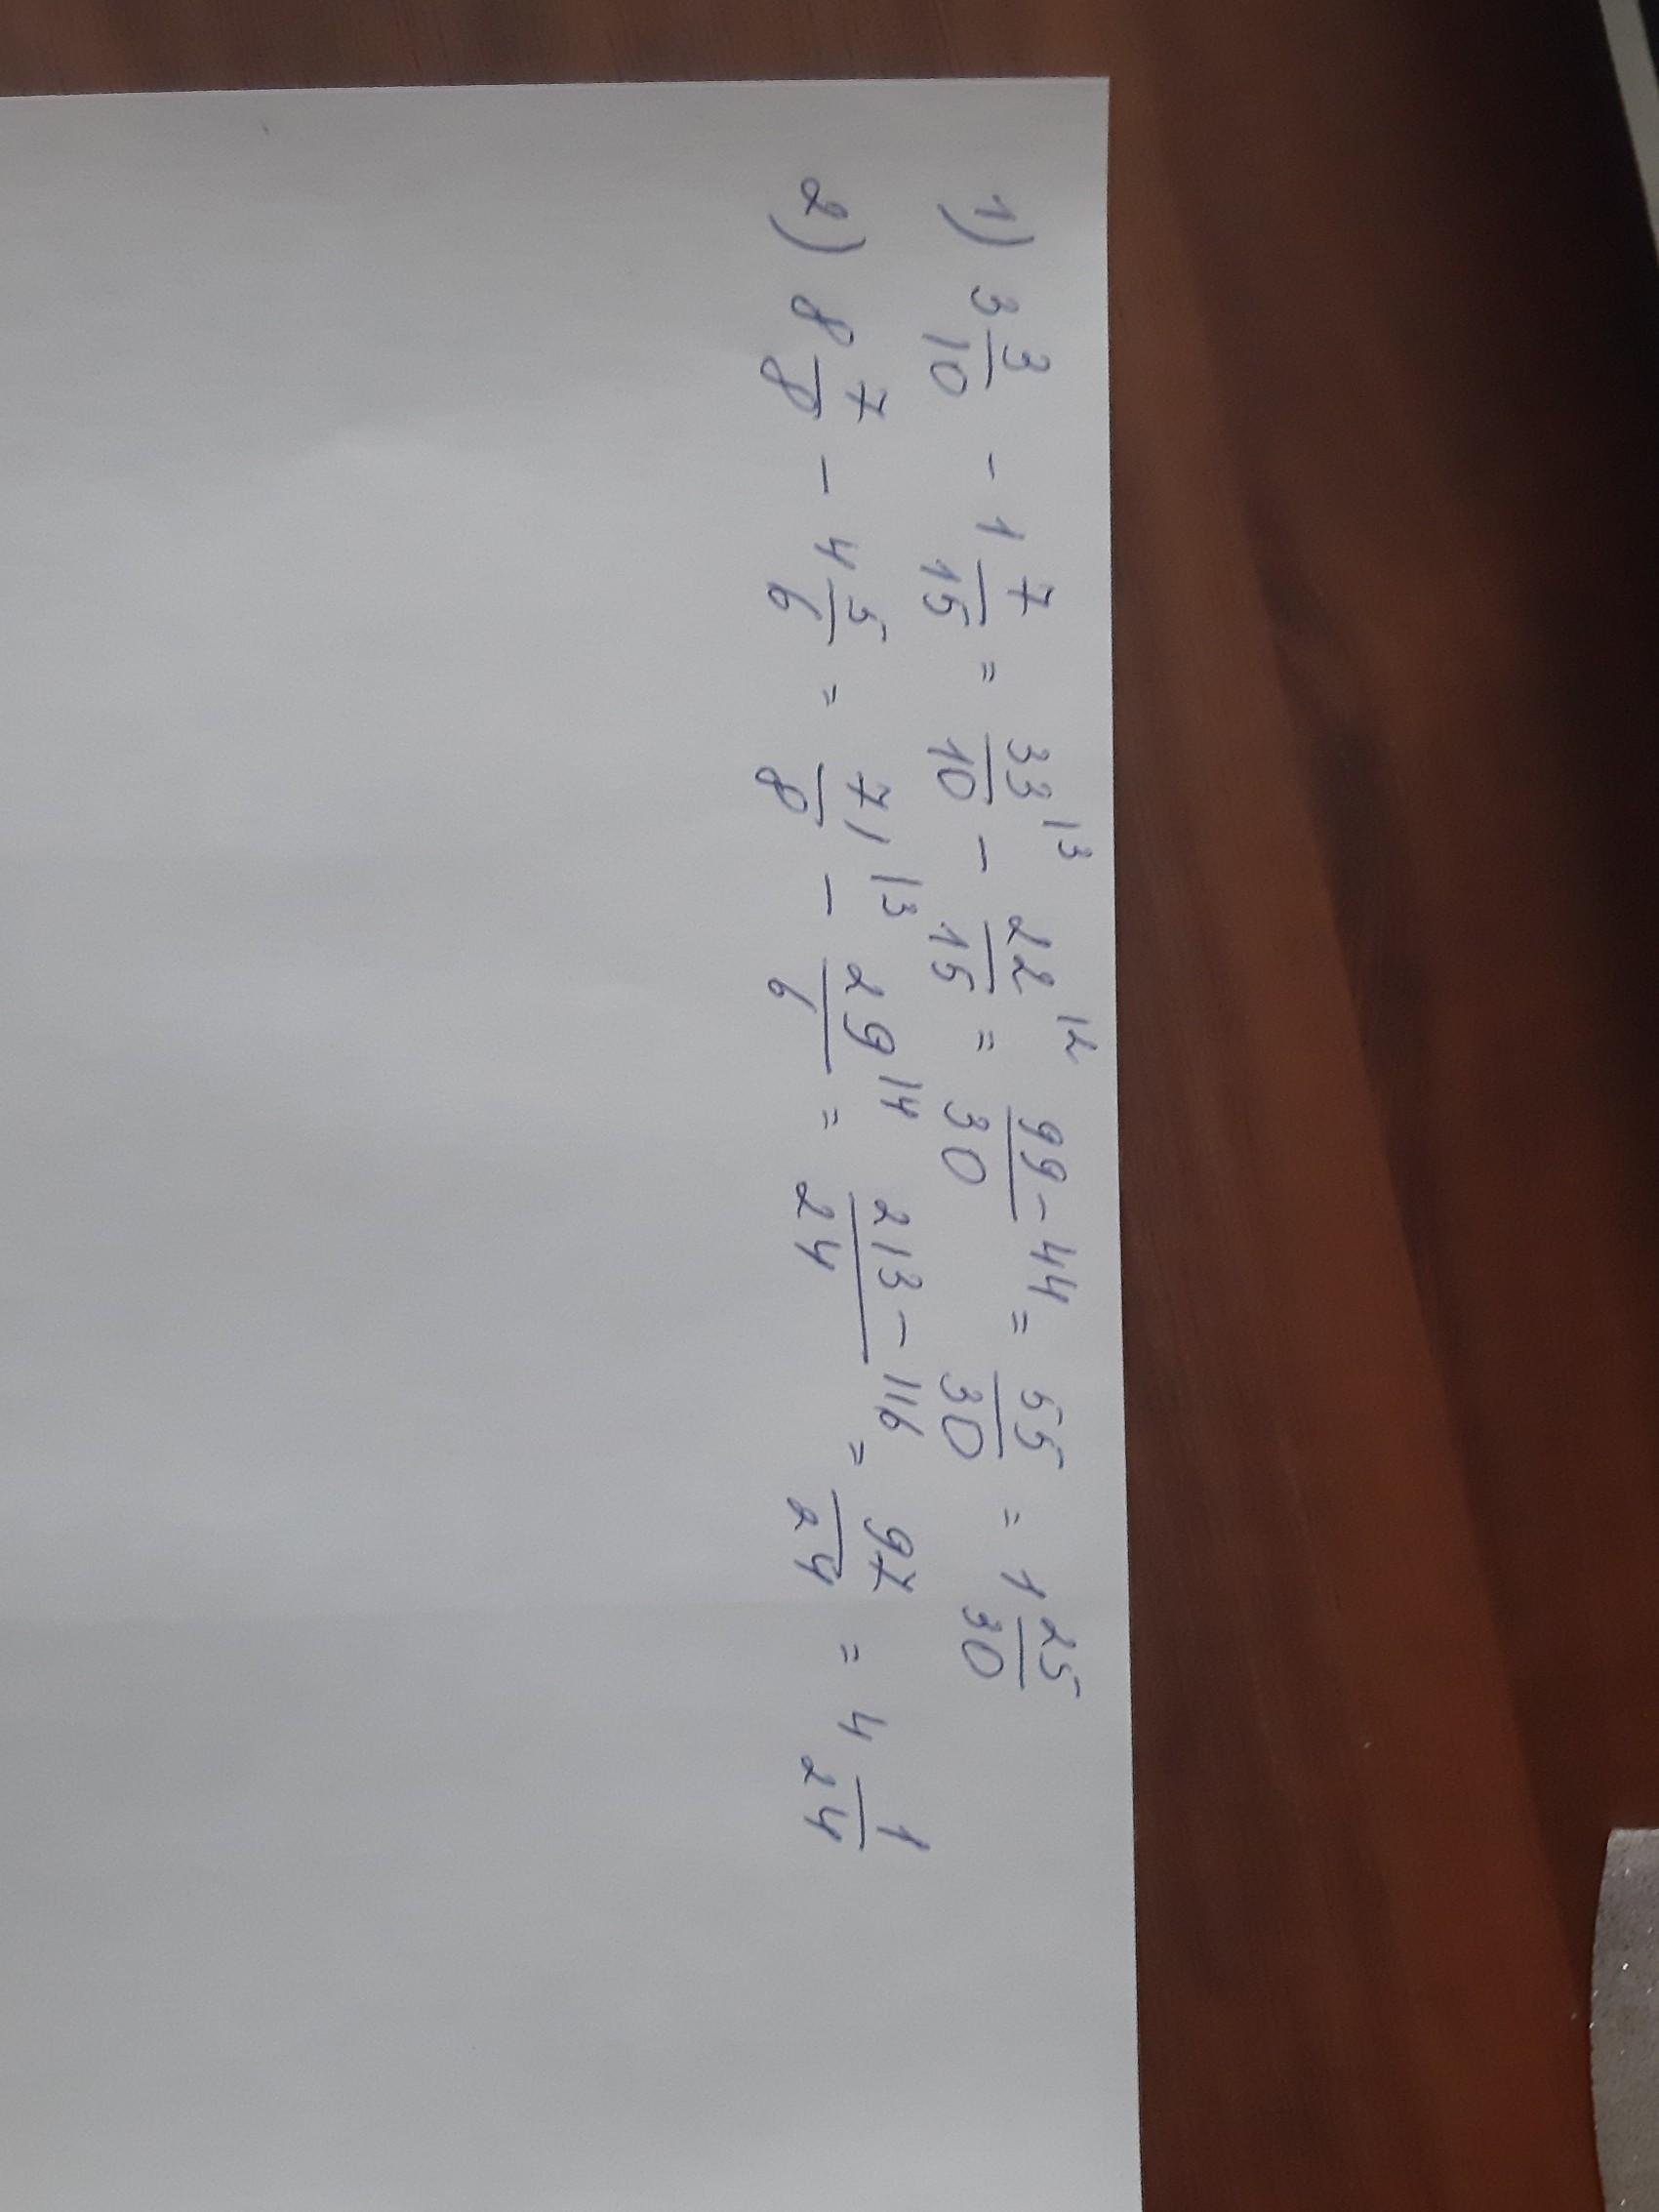 1) 3 3/10 - 1 7/15 = 33/10 |3 - 22/15 |2 = 99-44/30 = 55/30 = 1 25/30
2) 8 7/8 - 4 5/6 = 71/8 |3 - 29/6 |4 = 213-116/24 = 97/24 = 4 1/24